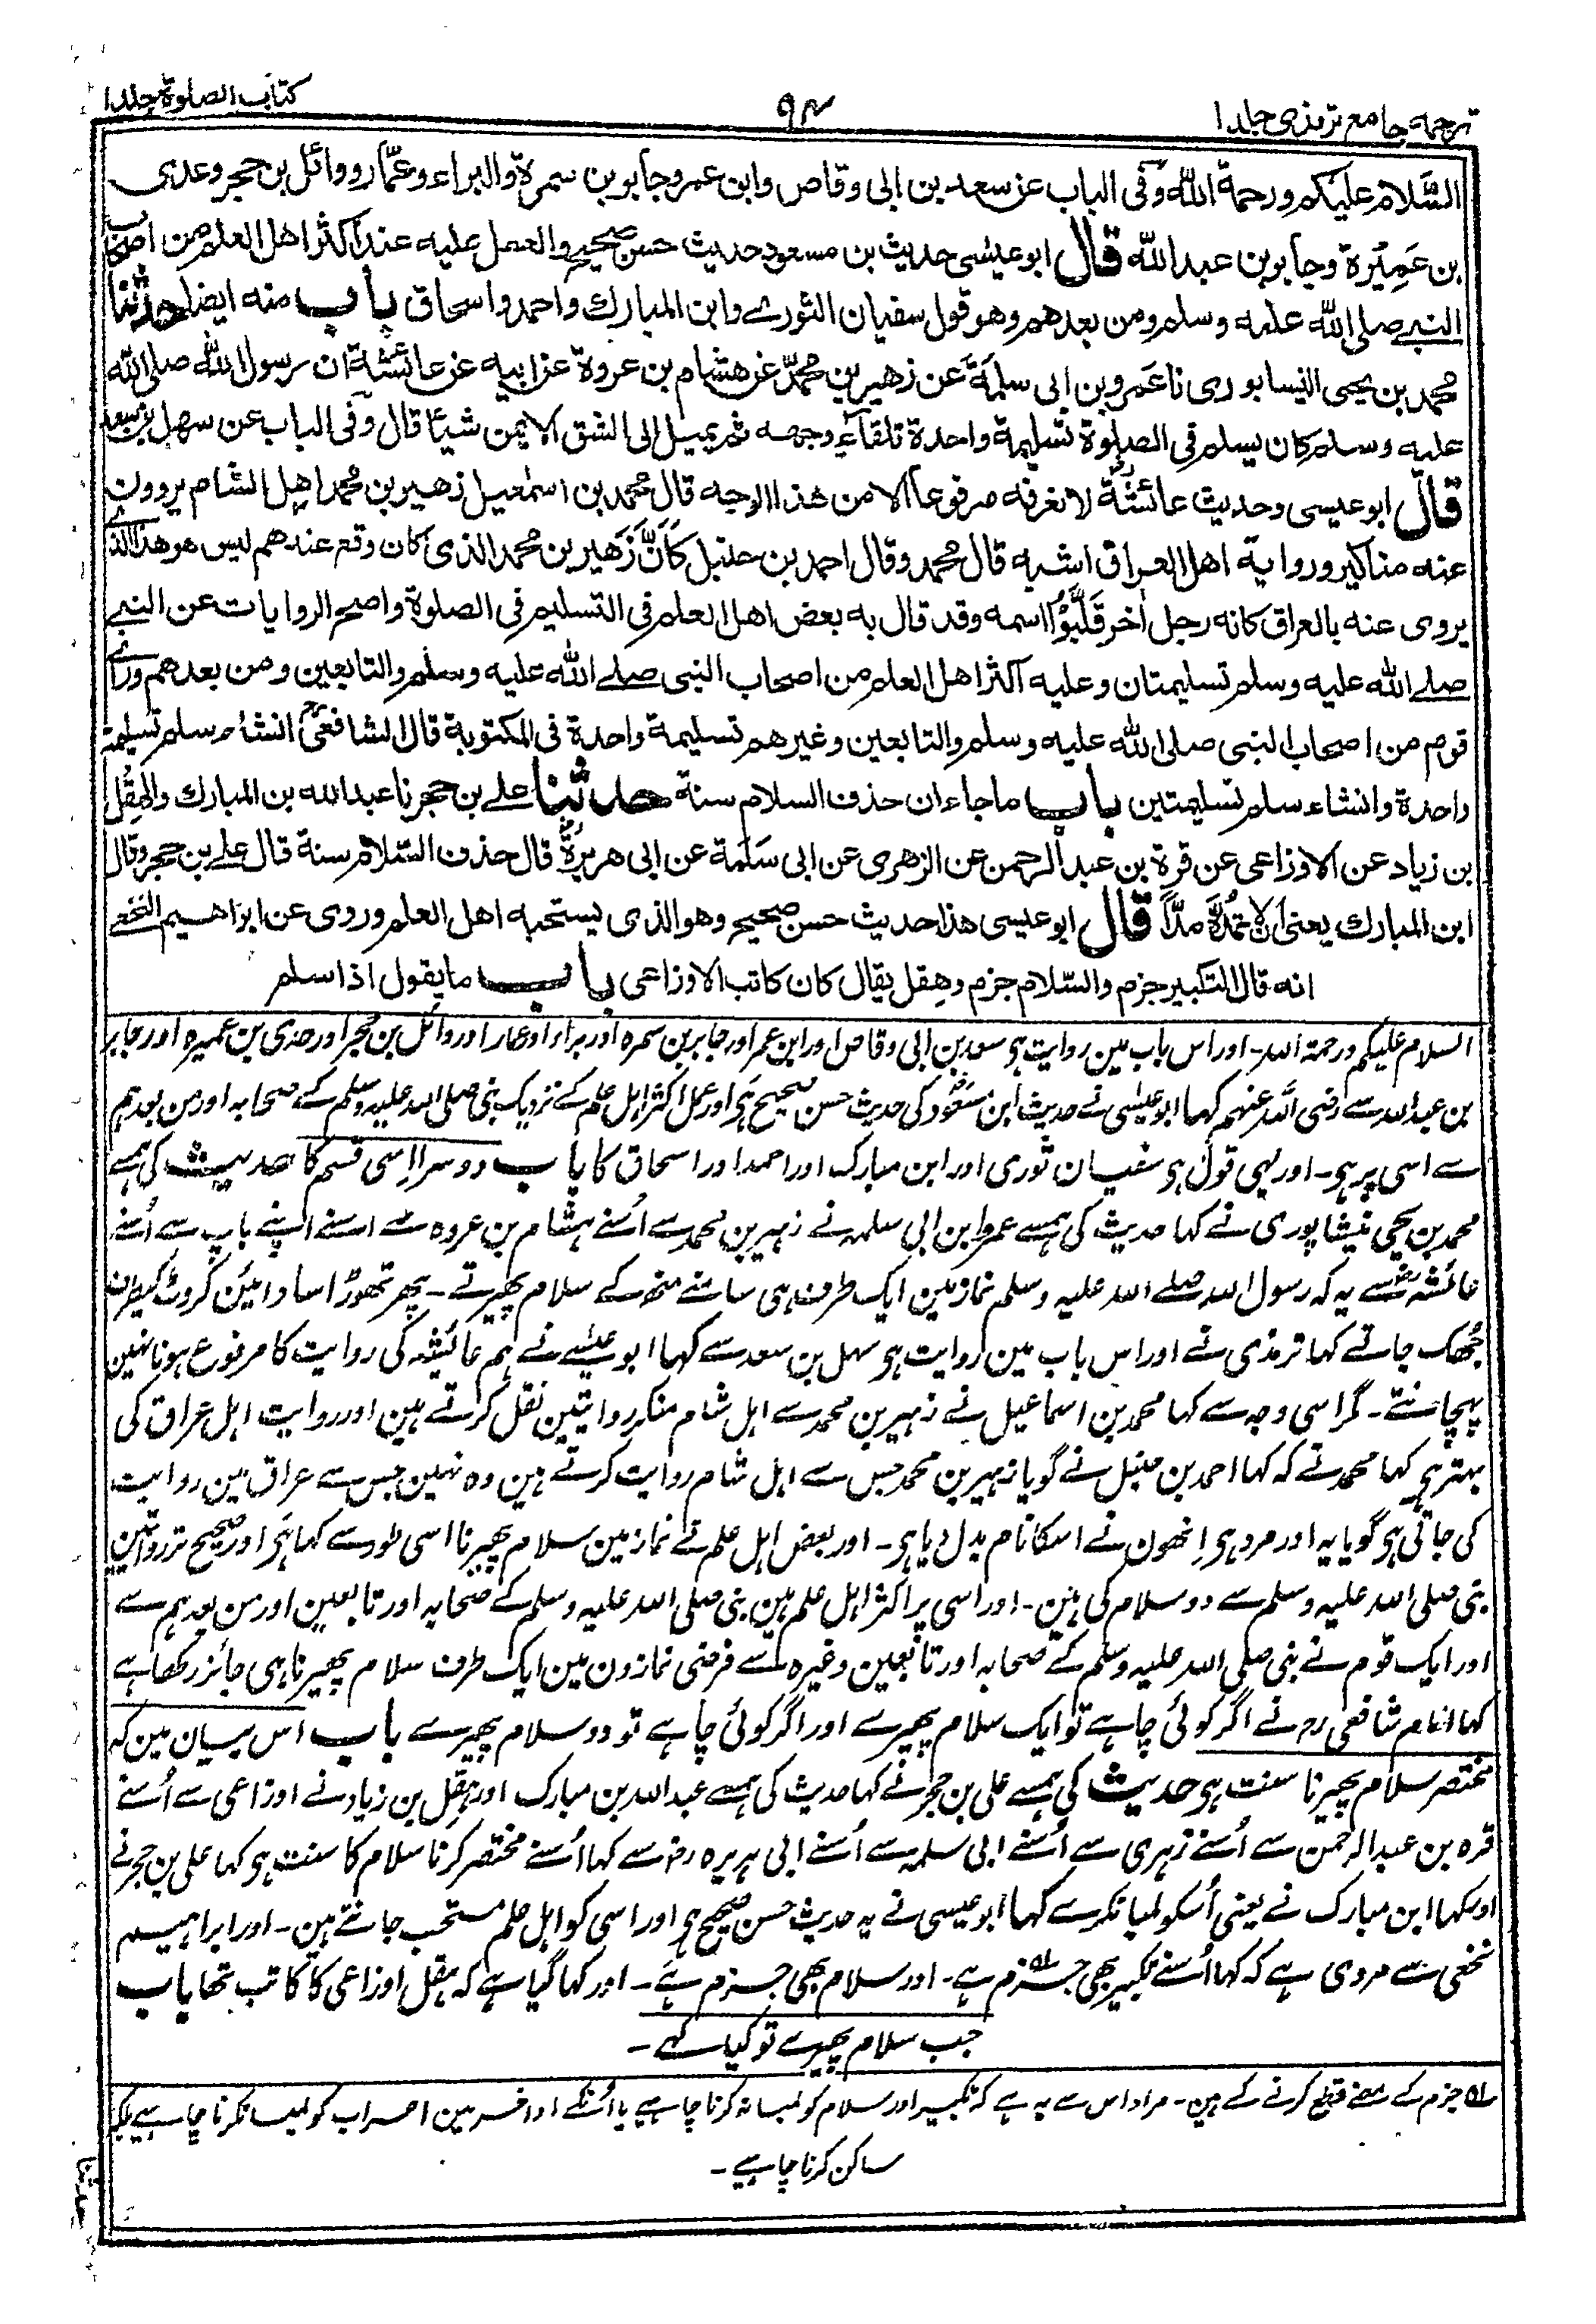 ترجمہ جامع ترمذی جلد ا
۹۴
کتاب الصلوۃ جلد ا
السَّلام علیکم ورحمة اللہ وفی الباب عن سعد بن ابی وقاص وابن عمر وجابر بن سمرة والبراء وعمّار ووائل بن حجر وعدی
بن عَمِیْرة وجابر بن عبد اللہ قال ابو عیسٰی حدیث بن مسعود حدیث حسن صحیح والعمل علیہ عند اکثر اھل العلم من اصحاب
النبے صلی اللہ علیہ وسلم ومن بعدھم وھو قول سفیان الثورے وابن المبارک واحمد واسحاق باب منہ ایضا حدثنا
محمد بن یحیی النیسابوری نا عمرو بن ابی سلمة عن زھیر بن محمد عن ھشام بن عروة عن ابیہ عن عائشة ان رسول اللہ صلی اللہ
علیہ وسلم کان یسلم فی الصلوة تسلیمة واحدة تلقاء وجھہ ثم یمیل الی الشق الایمن شیئا قال وفی الباب عن سھل بن سعد
قال ابو عیسی وحدیث عائشة لا نعرفہ مرفوعا الا من ھذا الوجہ قال محمد بن اسمٰعیل زھیر بن محمد اھل الشام یروون
عنہ مناکیر وروایة اھل العراق اشبہ قال محمد وقال احمد بن حنبل کَاَنَّ زھیر بن محمد الذی کان وقع عندھم لیس ھو ھذا الذے
یروی عنہ بالعراق کانہ رجل اٰخر قَلَبُوْا اسمہ وقد قال بہ بعض اھل العلم فی التسلیم فی الصلوة واصح الروایات عن النبے
صلے اللہ علیہ وسلم تسلیمتان وعلیہ اکثر اھل العلم من اصحاب النبی صلے اللہ علیہ وسلم والتابعین ومن بعدھم ورای
قوم من اصحاب النبی صلی اللہ علیہ وسلم والتابعین وغیرھم تسلیمة واحدة فی المکتوبة قال الشافعیؒ انشاء سلم تسلیمة
واحدة وانشاء سلم تسلیمتین باب ما جاء ان حذف السلام سنة حدثنا علے بن حجر نا عبد اللہ بن المبارک والھِقْل
بن زیاد عن الاوزاعی عن قرة بن عبد الرحمن عن الزھری عن ابی سَلَمة عن ابی ھریرةؓ قال حذف السّلام سنة قال علے بن حجر وقال
ابن المبارک یعنی اَن لا تمُدَّہ مدّاً قال ابو عیسی ھذا حدیث حسن صحیح وھو الذی یستحبہ اھل العلم وروی عن ابراھیم النخعے
انہ قال التکبیر جزم والسّلام جزم وھِقل یقال کان کاتب الاوزاعی باب ما یقول اذا سلم
السلام علیکم ورحمۃ اللہ۔ اور اس باب مین روایت ہو سعد بن ابی وقاص اور ابن عمر اور جابر بن سمرہ اور براء اور عمار اور وائل بن حجر اور عدی بن عمیرہ اور جابر
بن عبد اللہ سے رضی اللہ عنہم کہا ابو عیسٰی نے حدیث ابن مسعودؓ کی حدیث حسن صحیح ہی اور عمل اکثر اہل علم کے نزدیک نبی صلی اللہ علیہ وسلم کے صحابہ اور من بعدہم
سے اسی پر ہو۔ اور یہی قول ہو سفیان ثوری اور ابن مبارک اور احمد اور اسحاق کا باب دوسرا اِسی قسم کا حدیث کی ہمسے
محمد بن یحییٰ نیشاپوری نے کہا حدیث کی ہمسے عمرو ابن ابی سلمہ نے زہیر بن محمد سے اُسنے ہشام بن عروہ سے اسنے اپنے باپ سے اُسنے
عائشہؓ سے یہ کہ رسول اللہ صلے اللہ علیہ وسلم نماز مین ایک طرف ہی سامنے منھ کے سلام پھیرتے۔ پھر تھوڑا سا داہنی کروٹ کیطرف
جُھک جاتے کہا ترمذی نے اور اس باب مین روایت ہو سہل بن سعد سے کہا ابو عیسے نے ہم عائشہ کی روایت کا مرفوع ہونا نہین
پہچانتے۔ مگر اسی وجہ سے کہا محمد بن اسماعیل نے زہیر بن محمد سے اہل شام منکر روایتین نقل کرتے ہین اور روایت اہل عراق کی
بہتر ہی کہا محمد نے کہ کہا احمد بن حنبل نے گویا زہیر بن محمد جس سے اہل شام روایت کرتے ہین وہ نہین جس سے عراق مین روایت
کی جاتی ہو گویا یہ اور مرد ہو اِنھون نے اسکا نام بدل دیا ہو۔ اور بعض اہل علم نے نماز مین سلام پھیرنا اسی طور سے کہا ہَو اور صحیح تر روایتین
نبی صلی اللہ علیہ وسلم سے دو سلام کی ہین۔ اور اسی پر اکثر اہل علم ہین نبی صلی اللہ علیہ وسلم کے صحابہ اور تابعین اور من بعدہم سے
اور ایک قوم نے نبی صلی اللہ علیہ وسلم کے صحابہ اور تابعین وغیرہ سے فرضی نمازون مین ایک طرف سلام پھیرنا ہی جائز رکھا ہے
کہا امام شافعی رہ نے اگر کوئی چاہے تو ایک سلام پھیرے اور اگر کوئی چاہے تو دو سلام پھیرے باب اس بیان مین کہ
مختصر سلام پھیرنا سنت ہو حدیث کی ہمسے علی بن حجر نے کہا حدیث کی ہمسے عبد اللہ بن مبارک اور ہِقل بن زیاد نے اوزاعی سے اُسنے
قرہ بن عبد الرحمن سے اُسنے زہری سے اُسنے ابی سلمہ سے اُسنے ابی ہریرہ رضہ سے کہا اُسنے مختصر کرنا سلام کا سنت ہو کہا علی بن حجر نے
اور کہا ابن مبارک نے یعنی اُسکو لمبا نکرے کہا ابو عیسی نے یہ حدیث حسن صحیح ہی اور اسی کو اہل علم مستحب جانتے ہین۔ اور ابراہیم
نخعی سے مروی ہے کہ کہا اُسنے تکبیر بھی جزم ہے۔ اور سلام بھی جزم ہے۔ اور کہا گیا ہے کہ ہقل اوزاعی کا کاتب تھا باب
جب سلام پھیرے تو کیا کہے۔
؎۱ جزم کے معنے قطع کرنے کے ہین۔ مراد اس سے یہ ہے کہ تکبیر اور سلام کو لمبا نہ کرنا چاہیے یا اُنکے اواخر مین اعراب کو لمبا نکرنا چاہیے بلکہ
ساکن کرنا چاہیے۔